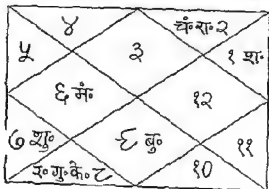 ४ चं॰ रा॰ २
५ ३ १ श॰
६ मं॰ १२
७ शु॰ ९ बु॰ ११
र॰ गु॰ के॰ ८ १०